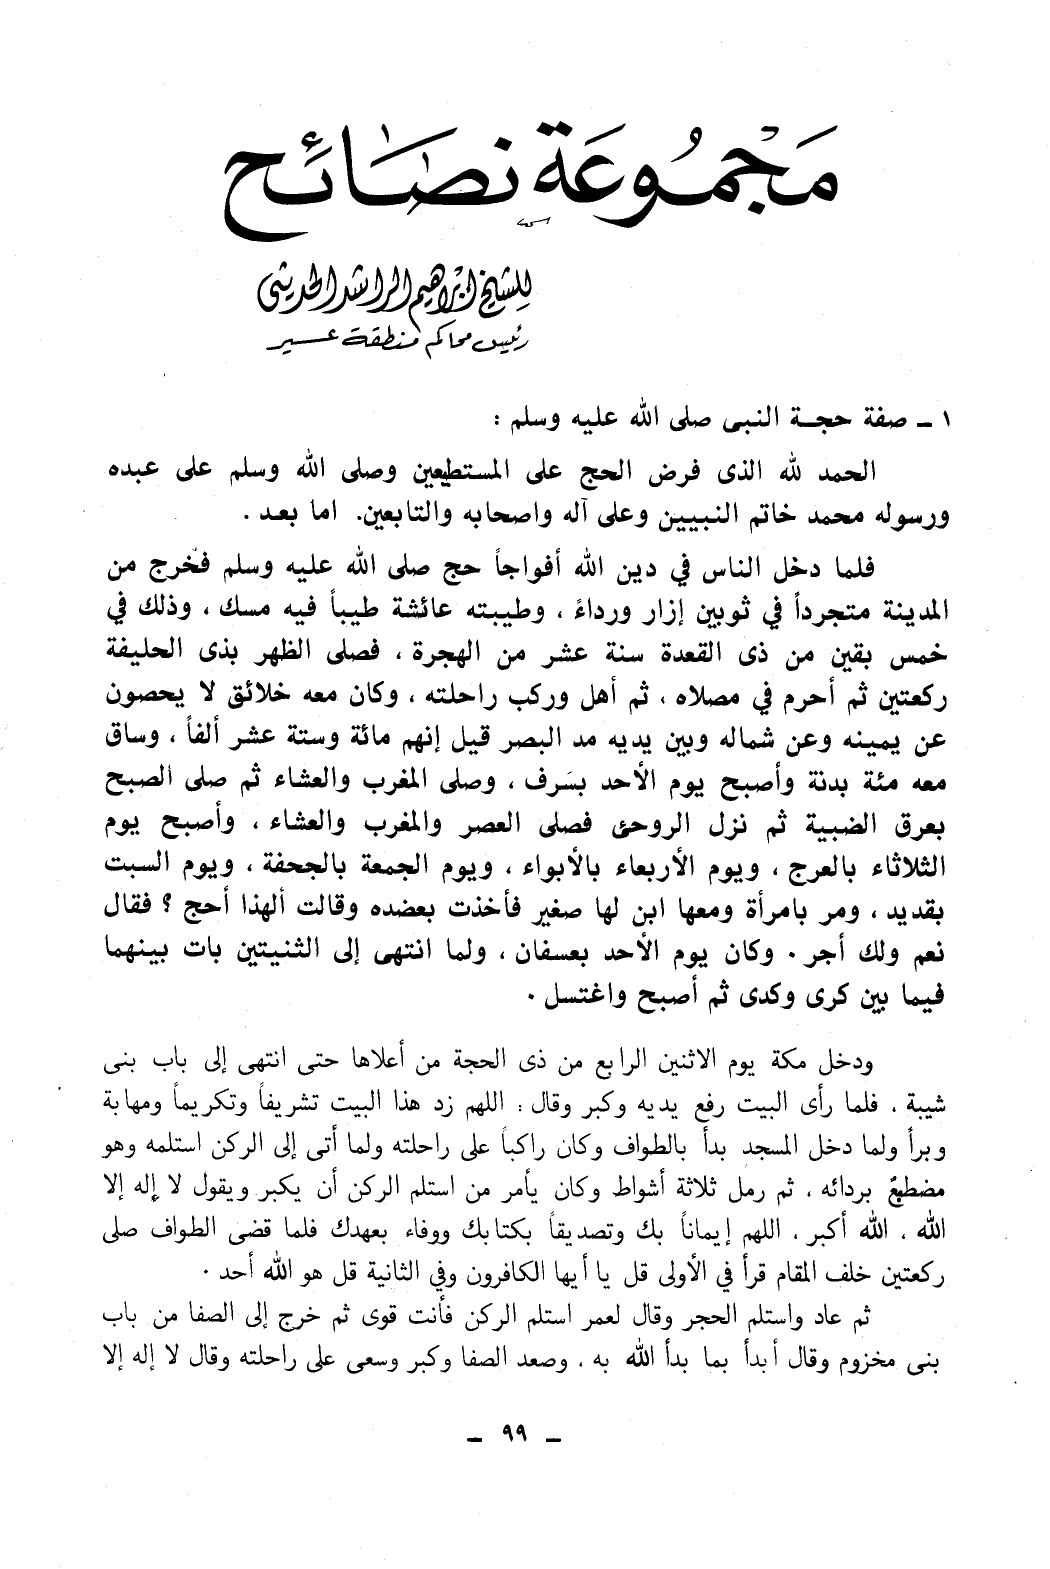 مَجْمُوعَة نصَائح
للشيخ ابراهيم الراشد الحديثى
رئيس محاكم منطقة عسير
١ ـ صفة حجة النبى صلى الله عليه وسلم :
الحمد لله الذى فرض الحج على المستطيعين وصلى الله وسلم على عبده
ورسوله محمد خاتم النبيين وعلى آله واصحابه والتابعين. اما بعد .
فلما دخل الناس في دين الله أفواجاً حج صلى الله عليه وسلم فخرج من
المدينة متجرداً في ثوبين إزار ورداءً ، وطيبته عائشة طيباً فيه مسك ، وذلك في
خمس بقين من ذى القعدة سنة عشر من الهجرة ، فصلى الظهر بذى الحليفة
ركعتين ثم أحرم في مصلاه ، ثم أهل وركب راحلته ، وكان معه خلائق لا يحصون
عن يمينه وعن شماله وبين يديه مد البصر قيل إنهم مائة وستة عشر ألفاً ، وساق
معه مئة بدنة وأصبح يوم الأحد بسَرف ، وصلى المغرب والعشاء ثم صلى الصبح
بعرق الضبية ثم نزل الروحئ فصلى العصر والمغرب والعشاء ، وأصبح يوم
الثلاثاء بالعرج ، ويوم الأربعاء بالأبواء ، ويوم الجمعة بالجحفة ، ويوم السبت
بقديد ، ومر بامرأة ومعها ابن لها صغير فأخذت بعضده وقالت ألهذا أحج ؟ فقال
نعم ولك أجر . وكان يوم الأحد بعسفان ، ولما انتهى إلى الثنيتين بات بينهما
فيما بين كرى وكدى ثم أصبح واغتسل .
ودخل مكة يوم الاثنين الرابع من ذى الحجة من أعلاها حتى انتهى إلى باب بنى
شيبة ، فلما رأى البيت رفع يديه وكبر وقال : اللهم زد هذا البيت تشريفاً وتكريماً ومهابة
وبرأ ولما دخل المسجد بدأ بالطواف وكان راكباً على راحلته ولما أتى إلى الركن استلمه وهو
مضطبعٌ بردائه ، ثم رمل ثلاثة أشواط وكان يأمر من استلم الركن أن يكبر ويقول لا إله إلا
الله ، الله أكبر ، اللهم إيماناً بك وتصديقاً بكتابك ووفاء بعهدك فلما قضى الطواف صلى
ركعتين خلف المقام قرأ في الأولى قل يا أيها الكافرون وفي الثانية قل هو الله أحد .
ثم عاد واستلم الحجر وقال لعمر استلم الركن فأنت قوى ثم خرج إلى الصفا من باب
بنى مخزوم وقال أبدأ بما بدأ الله به ، وصعد الصفا وكبر وسعى على راحلته وقال لا إله إلا
ـ ٩٩ ـ